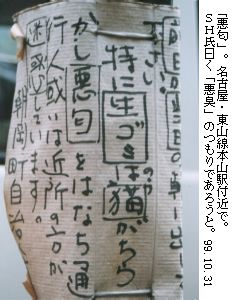 「悪句」。名古屋・東山線本山駅付近で。
ＳＨ氏曰く「悪臭」のつもりであろうと。99.10.31
前日
の車
出し
下さい
特に生ゴミは猫がちら
かし悪句をはなち通
行人或は近所の方が
迷惑しています。
岡町自治